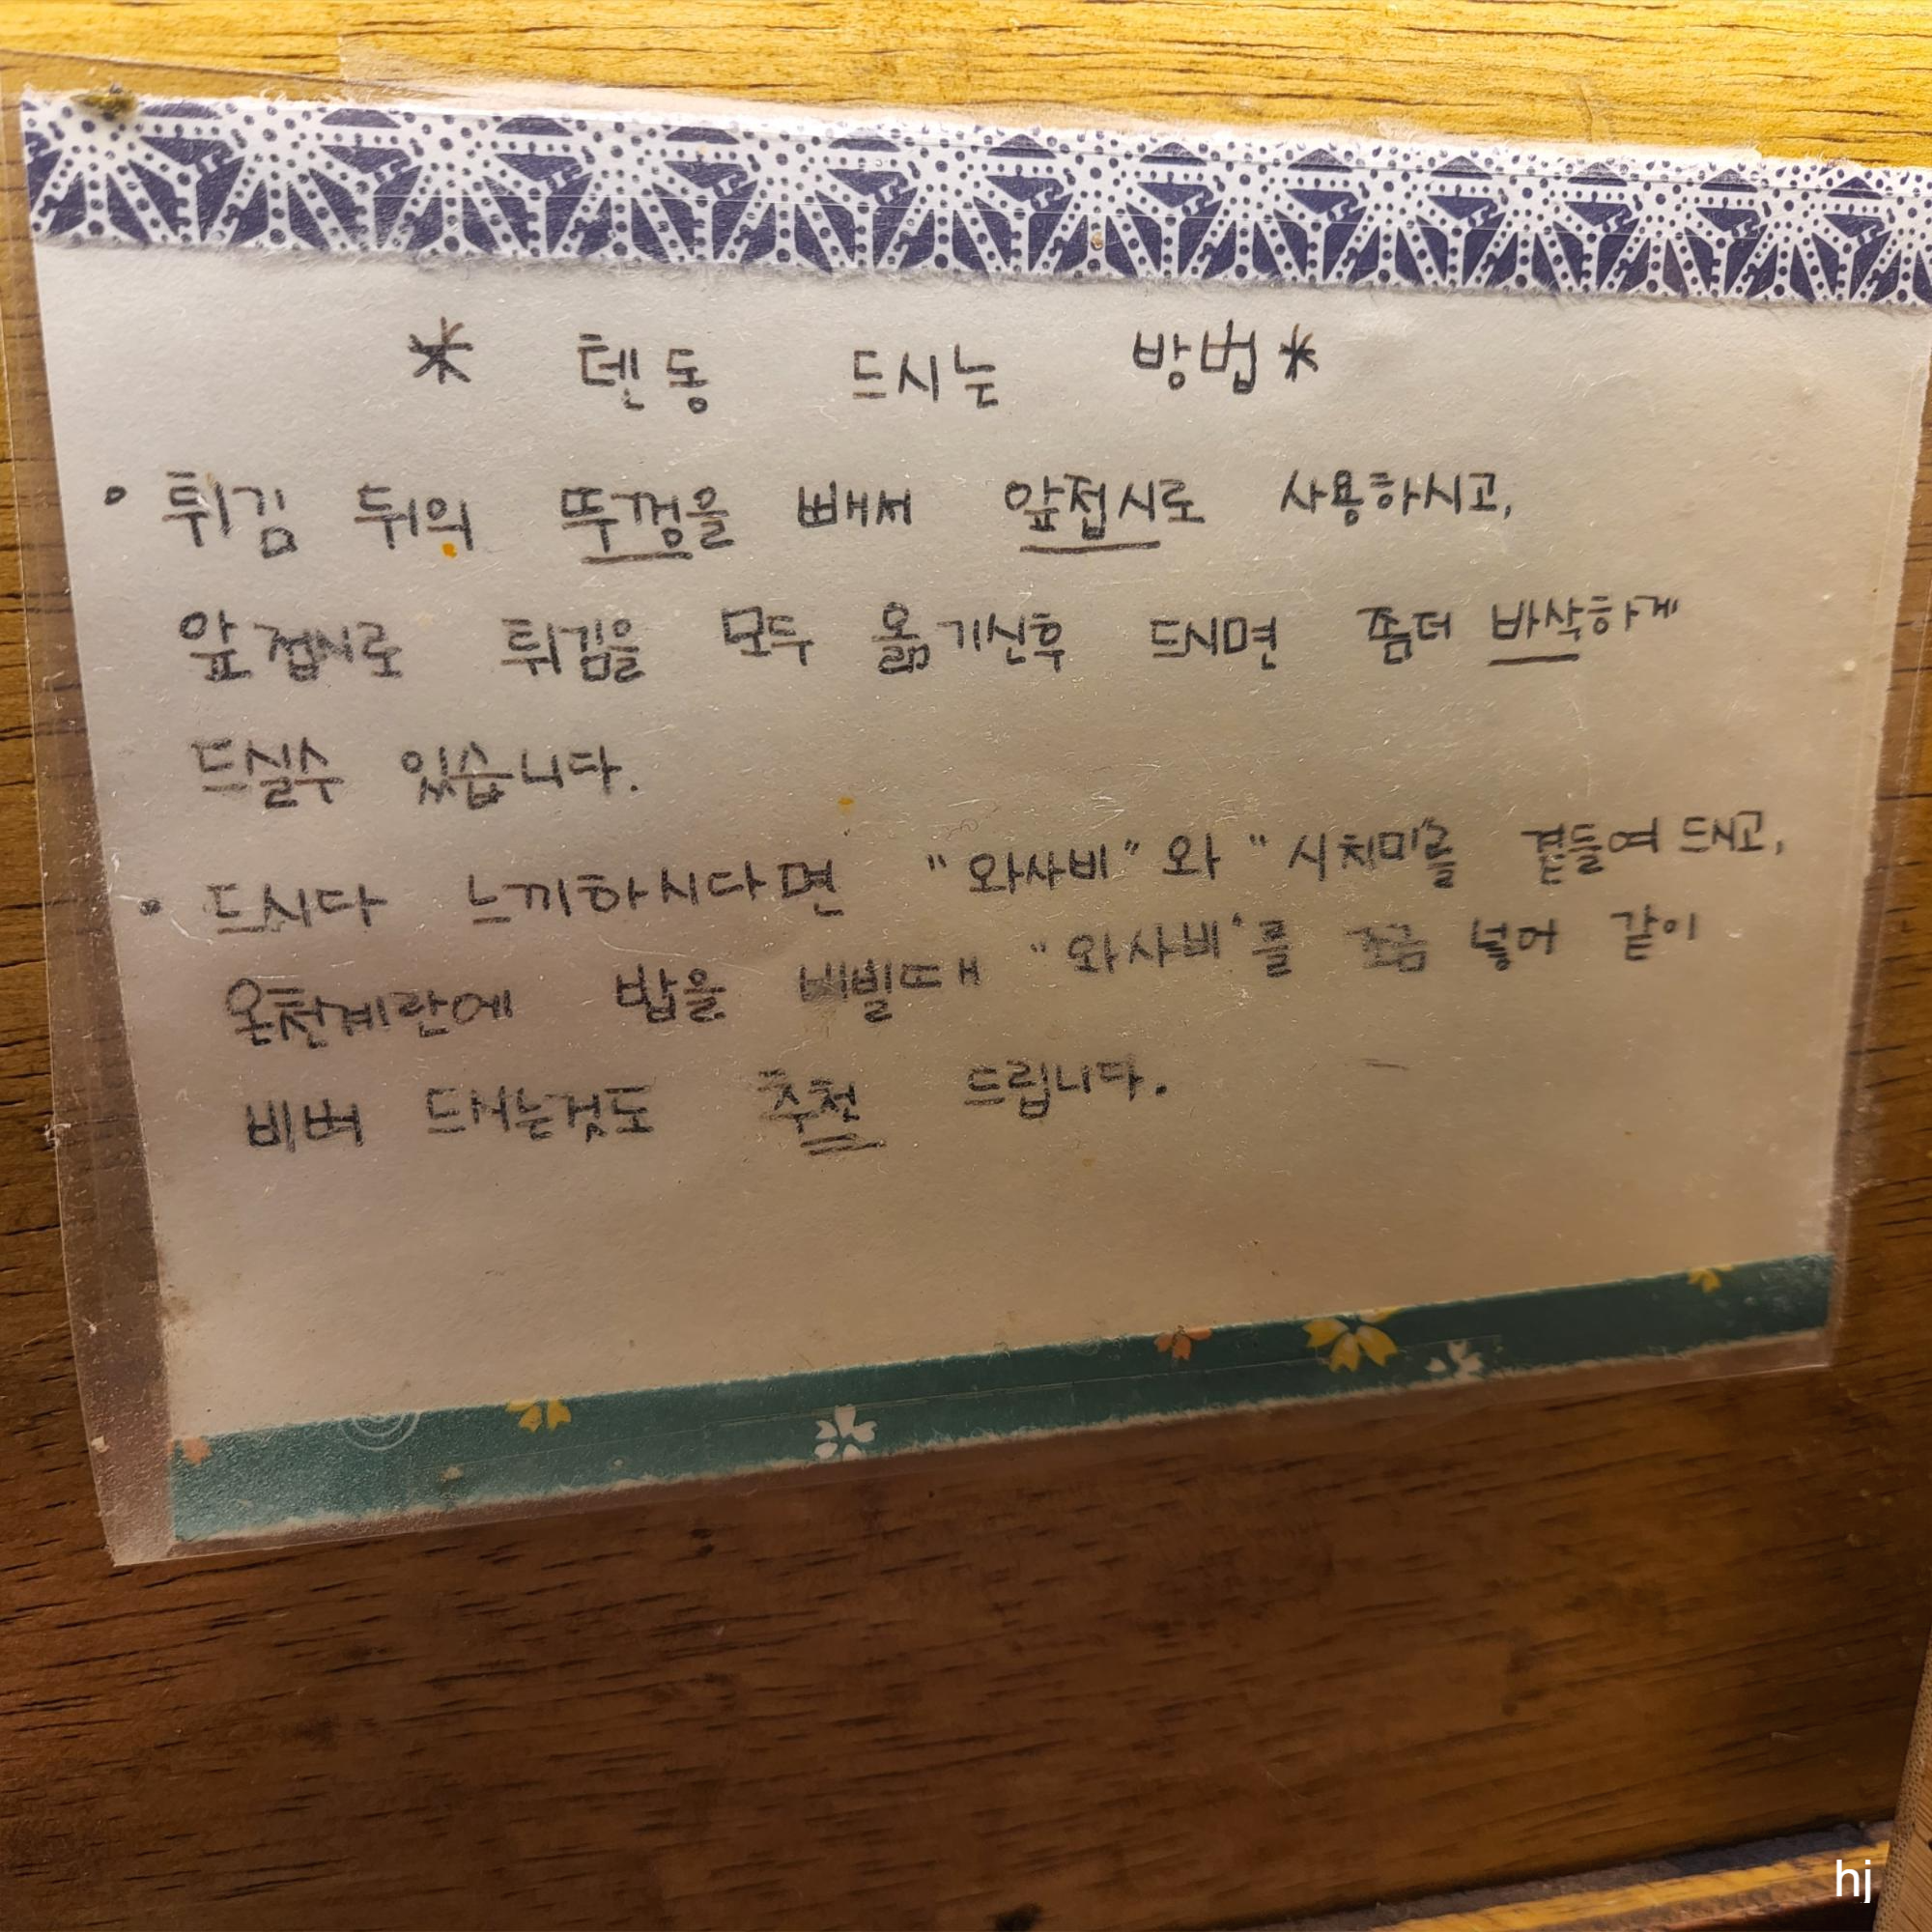 * 텐동 드시는 방법 *
• 튀김 뒤의 뚜껑을 빼서 앞접시로 사용하시고,
앞접시로 튀김을 모두 옮기신후 드시면 좀더 바삭하게
드실수 있습니다.
• 드시다 느끼하시다면 "와사비" 와 "시치미"를 곁들여 드시고,
온천계란에 밥을 비빌때 "와사비"를 조금 넣어 같이
비벼 드시는것도 추천 드립니다.
hj